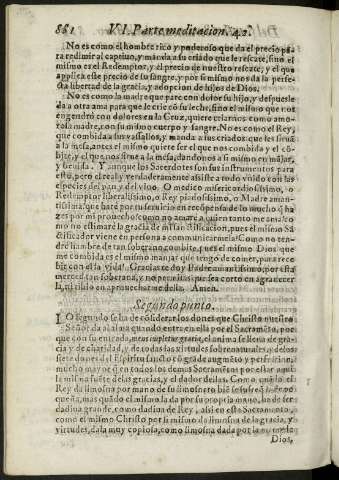 861 VI. Parte, meditacion. 42.
No es como el hombre rico y poderoso que da el precio pa
ra redimir al captiuo, y manda a su criado que le rescate, sino el
mismo es el Redemptor, y el precio de nuestro rescate; y el que
applica este precio de su sangre, y por si mismo nos da la perfe
cta libertad de la gracia, y adopcion de hijos de Dios.
No es como la madre que pare con dolor su hijo, y despues le
da a otra ama para que le crie cõ su leche, sino el mismo que nos
engendrò con dolores en la Cruz, quiere criarnos como amo
rosa madre, con su mismo cuerpo y sangre. No es como el Rey,
que combida a sus vassallos, y manda a sus criados que les siruã
a la mesa, antes el mismo quiere ser el que nos combida y el cõ
bite, y el que nos sirue a la mesa, dandonos a si mismo en mãjar,
y beuida. Y aunque los Sacerdotes son sus instrumentos para
esto, pero el real y verdaderamente assiste a todo vnido con las
especies del pan y del vino. O medico misericordiosissimo, o
Redemptor liberalissimo, o Rey piadosissimo, o Madre aman-
tissima, que harè por tu seruicio en recõpensa de lo mucho q̃ ha
zes por mi prouecho? como no amarè a quien tanto me ama? co
mo no estimarè la gracia de mi sanctificacion, pues el mismo Sã
ctificador viene en persona a communicarmela? Como no ten-
drè hambre de tan soberano combite, pues el mismo Dios que
me combida es el mismo manjar que tengo de comer, para rece
bir con el la vida? Gracias te doy Padre amantissimo, por esta
merced tan soberana, y no permitas que sea corto en agradecer
la, ni tibio en aprouecharme della. Amen.
Segundo punto.
LO segundo se ha de cõsiderar los dones que Christo nuestro
Señor da al alma quando entra en ella por el Sacramẽto, por
que con su entrada, mens impletur gratia, el anima se llena de gra-
cia y de charidad, y de todas las virtudes sobrenaturales, y de los
siete dones del Espiritu sancto cõ grã de augmẽto y perfeciõ,
mucho mayor q̃ en todos los demas Sacramẽtos por estar aqui
la misma fuẽte de las gracias, y el dador dellas. Como, quãdo el
Rey da limosna por mano de su limosnero biẽ se sufre q̃ sea pe
queña, mas quãdo el mismo la da por su propria mano, ha de ser
dadiua grande, como dadiua de Rey, assi en este Sacramento,
como el mismo Christo por si mismo da limosna de la gracia, y
virtudes, dala muy copiosa, como limosna dada por la
Dios,